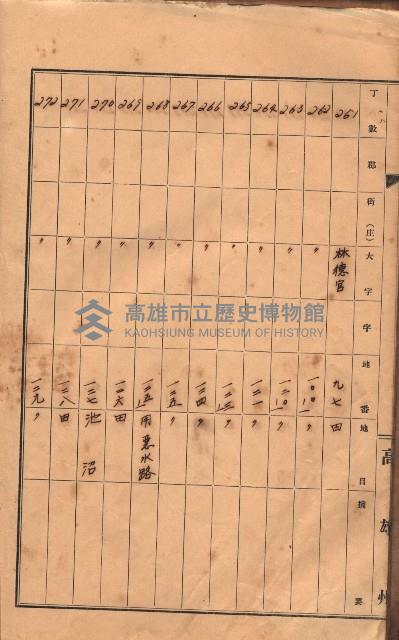 高雄州
丁數 郡 街(庄) 大字 字 地番 地目 摘要
261 林德官 九七 田
262 〃 一〇〇ノ一 〃
263 〃 一二〇ノ一 〃
264 〃 一二一 〃
265 〃 一二三 〃
266 〃 一二四 〃
267 〃 一二五 〃
268 〃 一二五ノ一 用惡水路
269 〃 一二六 田
270 〃 一二七 池沼
271 〃 一二八 田
272 〃 一二九 〃
高雄市立歷史博物館
KAOHSIUNG MUSEUM OF HISTORY